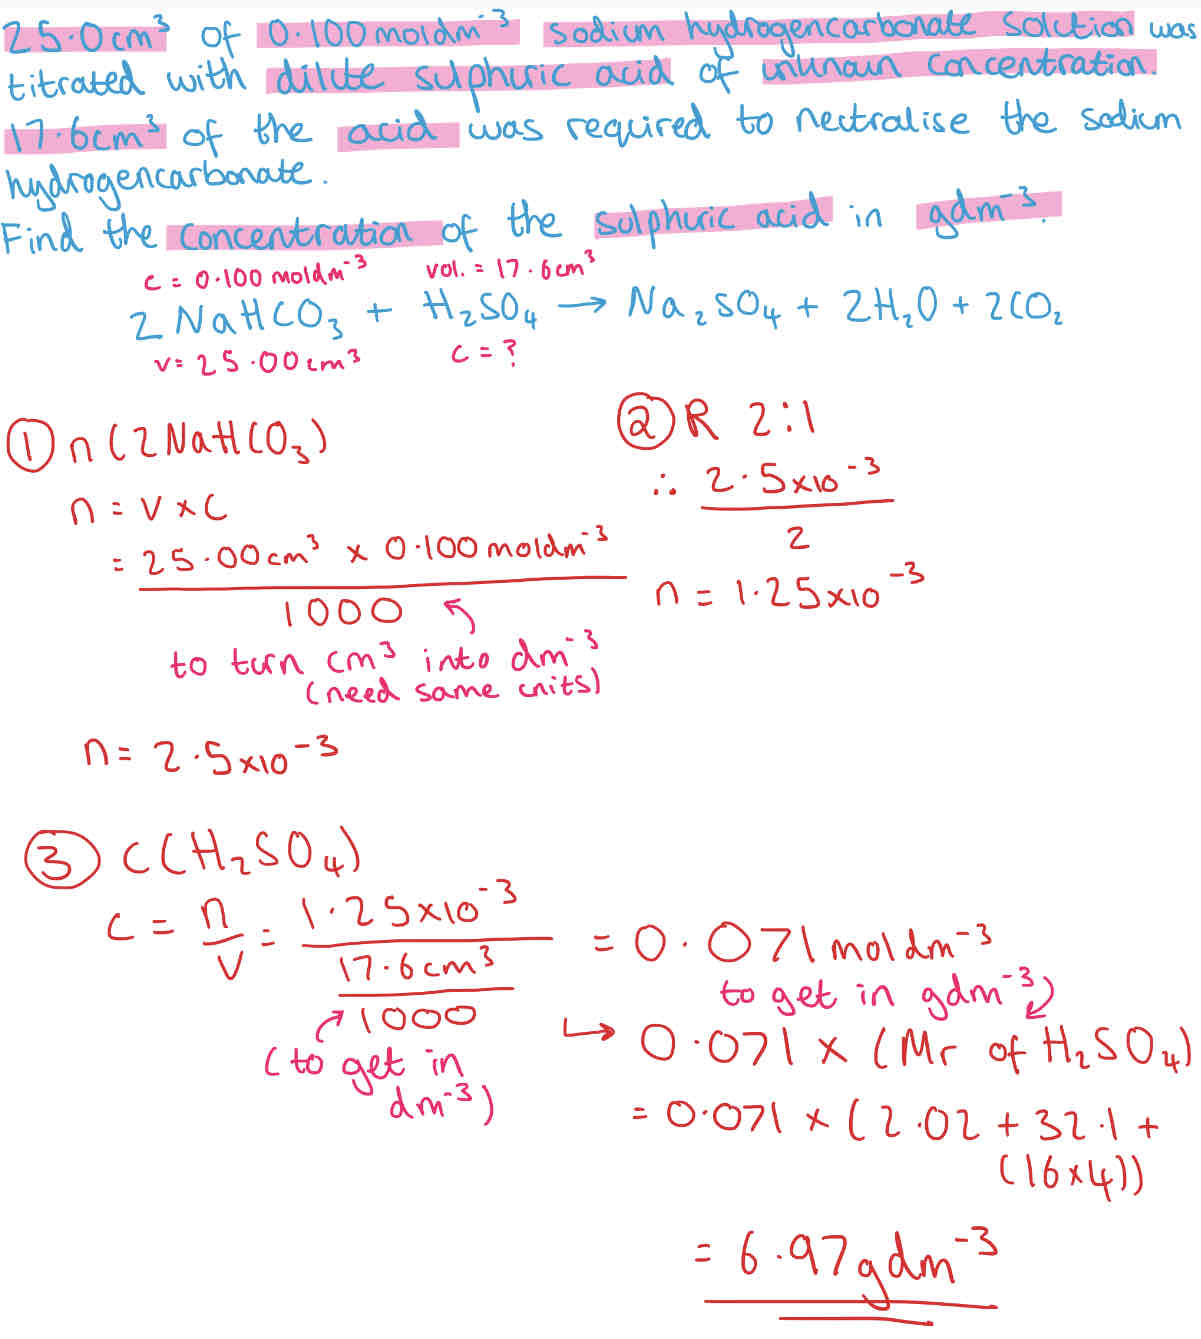 25.0cm³ of 0.100moldm⁻³ sodium hydrogencarbonate solution was
titrated with dilute sulphuric acid of unknown concentration.
17.6cm³ of the acid was required to neutralise the sodium
hydrogencarbonate.
Find the concentration of the sulphuric acid in gdm⁻³.
c = 0.100 moldm⁻³ vol. = 17.6cm³
2NaHCO₃ + H₂SO₄ → Na₂SO₄ + 2H₂O + 2CO₂
v = 25.00cm³ c = ?
① n(2NaHCO₃)
n = v × c
= 25.00cm³ × 0.100moldm⁻³
1000
to turn cm³ into dm⁻³
(need same units)
n = 2.5×10⁻³
② R 2:1
∴ 2.5×10⁻³
2
n = 1.25×10⁻³
③ c(H₂SO₄)
c = n/v = 1.25×10⁻³
17.6cm³
1000
(to get in
dm⁻³)
= 0.071moldm⁻³
to get in gdm⁻³
↳ 0.071 × (Mr of H₂SO₄)
= 0.071 × (2.02 + 32.1 +
(16×4))
= 6.97gdm⁻³